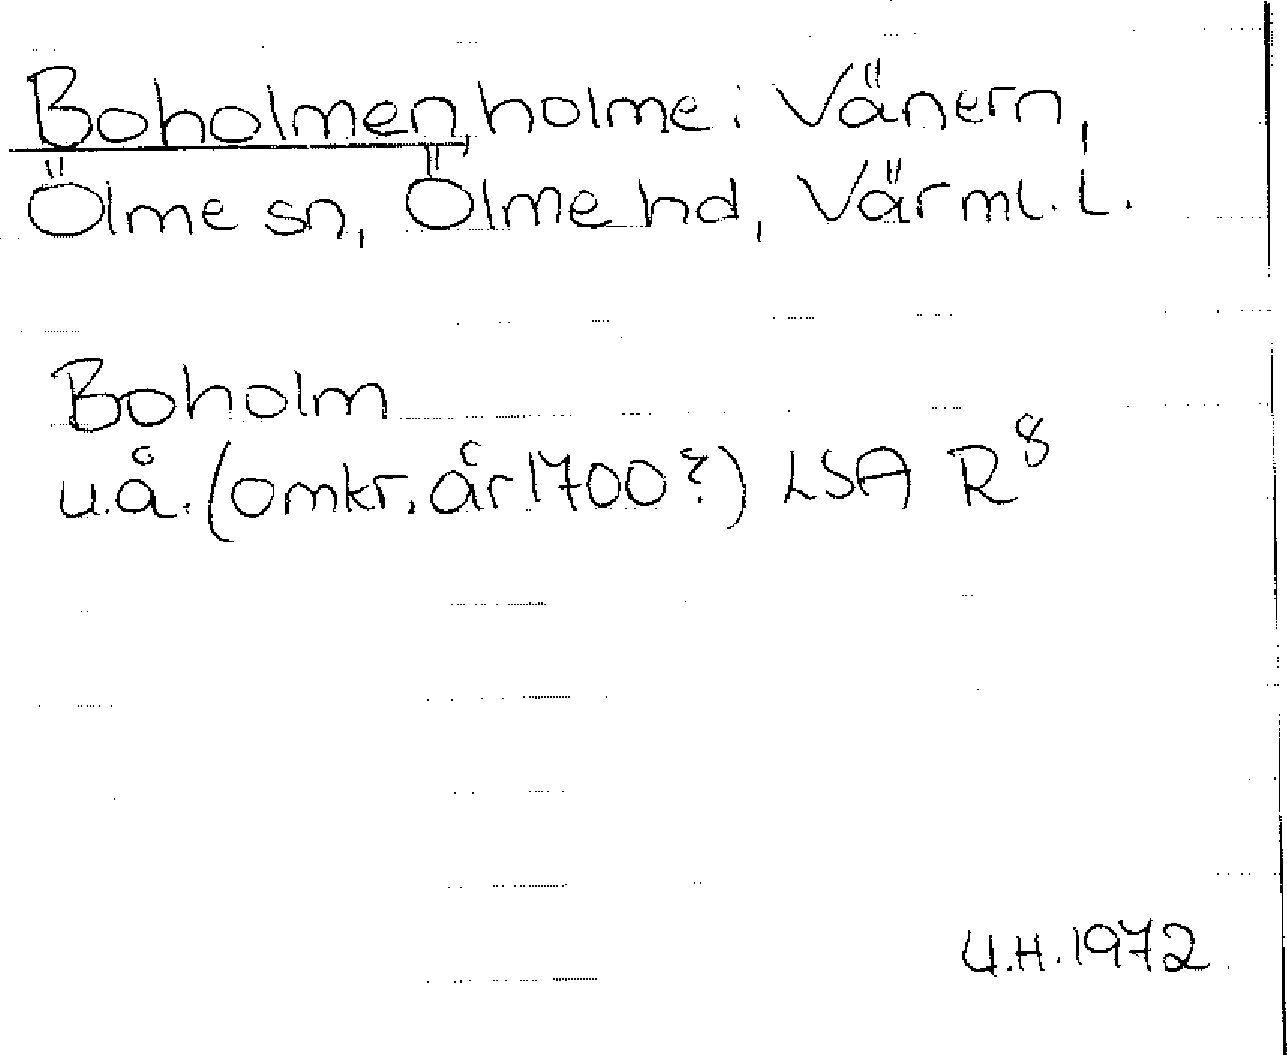 Boholmen, holme i Vänern,
Ölme sn, Ölme hd, Värml. L.
Boholm
u.å. (omkr. år 1700?) LSA R⁸
U.H. 1972